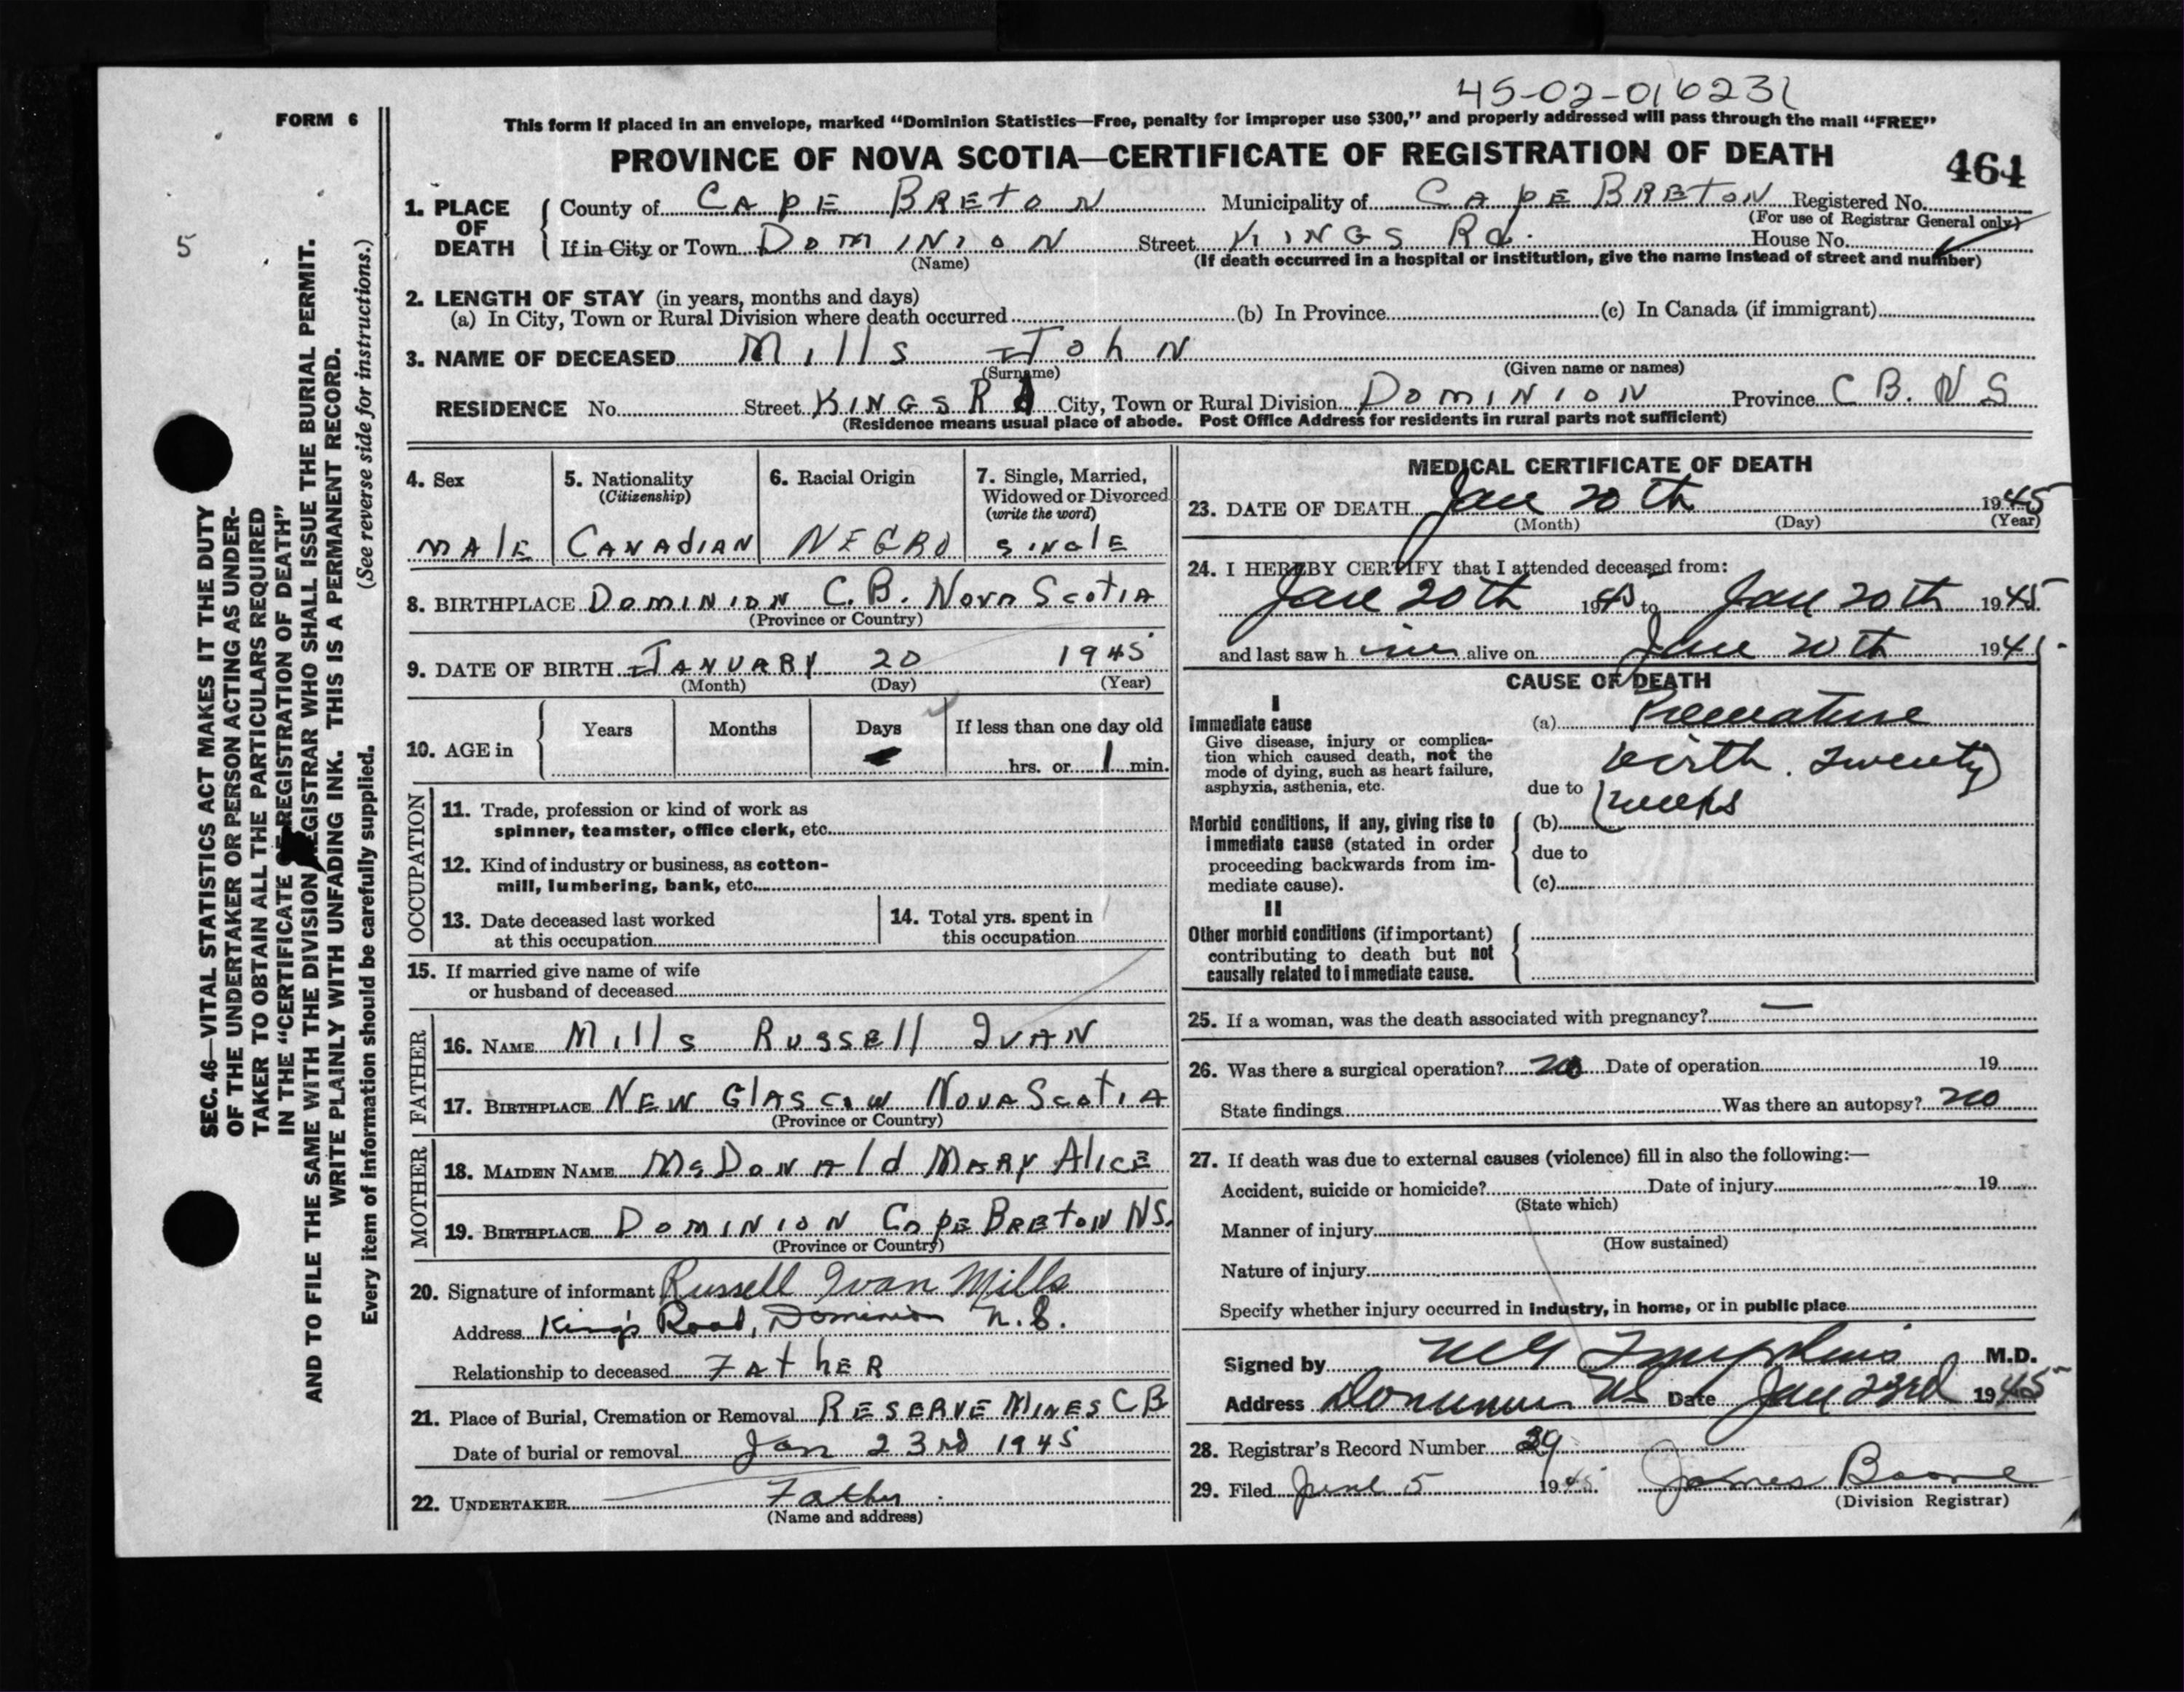 45-02-016231
FORM 6
This form if placed in an envelope, marked “Dominion Statistics—Free, penalty for improper use $300,” and properly addressed will pass through the mail “FREE”
PROVINCE OF NOVA SCOTIA—CERTIFICATE OF REGISTRATION OF DEATH
464
5
SEC. 46—VITAL STATISTICS ACT MAKES IT THE DUTY
OF THE UNDERTAKER OR PERSON ACTING AS UNDER-
TAKER TO OBTAIN ALL THE PARTICULARS REQUIRED
IN THE “CERTIFICATE OF REGISTRATION OF DEATH”
AND TO FILE THE SAME WITH THE DIVISION REGISTRAR WHO SHALL ISSUE THE BURIAL PERMIT.
WRITE PLAINLY WITH UNFADING INK. THIS IS A PERMANENT RECORD.
Every item of information should be carefully supplied. (See reverse side for instructions.)
1. PLACE OF DEATH
County of CAPE BRETON Municipality of CAPE BRETON Registered No.
(For use of Registrar General only)
If in City or Town DOMINION Street KINGS Rd. House No.
(Name) (If death occurred in a hospital or institution, give the name instead of street and number)
2. LENGTH OF STAY (in years, months and days)
(a) In City, Town or Rural Division where death occurred (b) In Province (c) In Canada (if immigrant)
3. NAME OF DECEASED Mills John
(Surname) (Given name or names)
RESIDENCE No. Street KINGS Rd City, Town or Rural Division DOMINION Province C B. N S
(Residence means usual place of abode. Post Office Address for residents in rural parts not sufficient)
4. Sex
MALE
5. Nationality
(Citizenship)
CANADIAN
6. Racial Origin
NEGRO
7. Single, Married,
Widowed or Divorced
(write the word)
SINGLE
8. BIRTHPLACE DOMINION C.B. NOVA SCOTIA
(Province or Country)
9. DATE OF BIRTH JANUARY 20 1945
(Month) (Day) (Year)
10. AGE in
Years Months Days If less than one day old
hrs. or 1 min.
OCCUPATION
11. Trade, profession or kind of work as
spinner, teamster, office clerk, etc.
12. Kind of industry or business, as cotton-
mill, lumbering, bank, etc.
13. Date deceased last worked
at this occupation
14. Total yrs. spent in
this occupation
15. If married give name of wife
or husband of deceased
FATHER
16. NAME Mills Russell Ivan
17. BIRTHPLACE NEW GLASGOW NOVA SCOTIA
(Province or Country)
MOTHER
18. MAIDEN NAME McDonald Mary Alice
19. BIRTHPLACE DOMINION CAPE BRETON NS.
(Province or Country)
20. Signature of informant Russell Ivan Mills
Address King's Road, Dominion N.S.
Relationship to deceased FATHER
21. Place of Burial, Cremation or Removal RESERVE MINES C B
Date of burial or removal Jan 23rd 1945
22. UNDERTAKER Father
(Name and address)
MEDICAL CERTIFICATE OF DEATH
23. DATE OF DEATH Jan 20th 1945
(Month) (Day) (Year)
24. I HEREBY CERTIFY that I attended deceased from:
Jan 20th 1945 to Jan 20th 1945
and last saw h im alive on Jan 20th 1945
CAUSE OF DEATH
I
Immediate cause (a) Premature
Give disease, injury or complica-
tion which caused death, not the
mode of dying, such as heart failure,
asphyxia, asthenia, etc.
birth. Twenty
due to weeks
Morbid conditions, if any, giving rise to
immediate cause (stated in order
proceeding backwards from im-
mediate cause).
(b)
due to
(c)
II
Other morbid conditions (if important)
contributing to death but not
causally related to immediate cause.
25. If a woman, was the death associated with pregnancy? —
26. Was there a surgical operation? no Date of operation 19
State findings Was there an autopsy? no
27. If death was due to external causes (violence) fill in also the following:—
Accident, suicide or homicide? Date of injury 19
(State which)
Manner of injury
(How sustained)
Nature of injury
Specify whether injury occurred in industry, in home, or in public place
Signed by M.D.
Address Dominion NS Date Jan 23rd 1945
28. Registrar's Record Number 29
29. Filed 5 1945 James Boone
(Division Registrar)